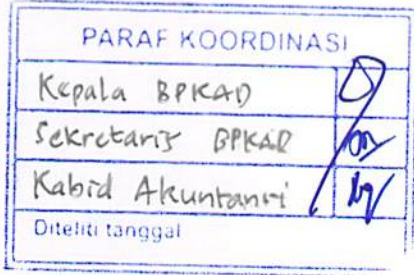 PARAF KOORDINASI
Kepala BPKAD
Sekretaris BPKAD
Kabid Akuntansi
Diteliti tanggal